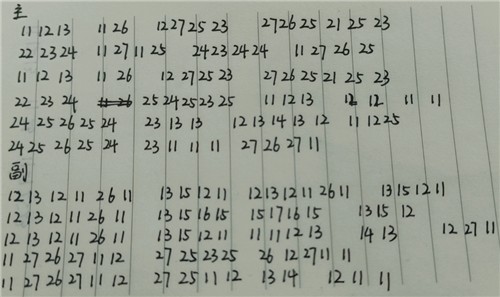 主
11 12 13 11 26 12 27 25 23 27 26 25 21 25 23
22 23 24 11 27 11 25 24 23 24 24 11 27 26 25
11 12 13 11 26 12 27 25 23 27 26 25 21 25 23
22 23 24 25 24 25 23 25 11 12 13 12 12 11 11
24 25 26 25 24 23 13 13 12 13 14 13 12 11 12 25
24 25 26 25 24 23 11 11 11 27 26 27 11
副
12 13 12 11 26 11 13 15 12 11 12 13 12 11 26 11 13 15 12 11
12 13 12 11 26 11 13 15 16 15 15 17 16 15 13 15 12
12 13 12 11 26 11 13 15 12 11 11 11 12 13 14 13 12 27 11
11 27 26 27 11 12 27 25 23 25 26 12 27 11 11
11 27 26 27 11 12 27 25 11 12 13 14 12 11 11